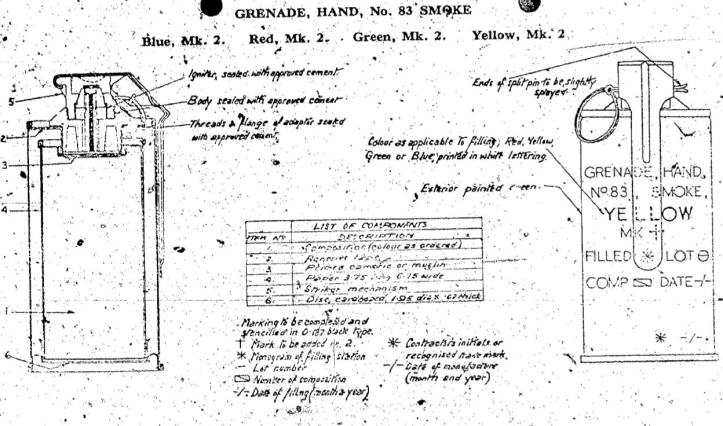 GRENADE, HAND, No. 83 SMOKE
Blue, Mk. 2. Red, Mk. 2. Green, Mk. 2. Yellow, Mk. 2
Igniter, sealed with approved cement.
Body sealed with approved cement
Threads & flange of adaptor sealed
with approved cement.
5
2
3
4
1
6
Ends of split pin to be slightly
splayed.
Colour as applicable to filling; Red, Yellow,
Green or Blue, printed in white lettering.
Exterior painted green.
GRENADE, HAND,
Nº 83 SMOKE,
YELLOW
MK †
FILLED * LOT ⊖
COMP DATE -/-
* -/-
LIST OF COMPONENTS
ITEM Nº DESCRIPTION
1. Composition (colour as ordered)
2. tape
3. Primed cambric or muslin
4. Paper 3.75 6.75 wide
5. Striker mechanism
6. Disc, cardboard, 1.95 dia x thick
Marking to be completed and
stencilled in 0.187 black type.
† Mark to be added i.e. 2.
* Monogram of filling station
– Lot number
Number of composition
-/- Date of filling (month & year)
* Contractor's initials or
recognised trade mark.
-/- Date of manufacture
(month and year)